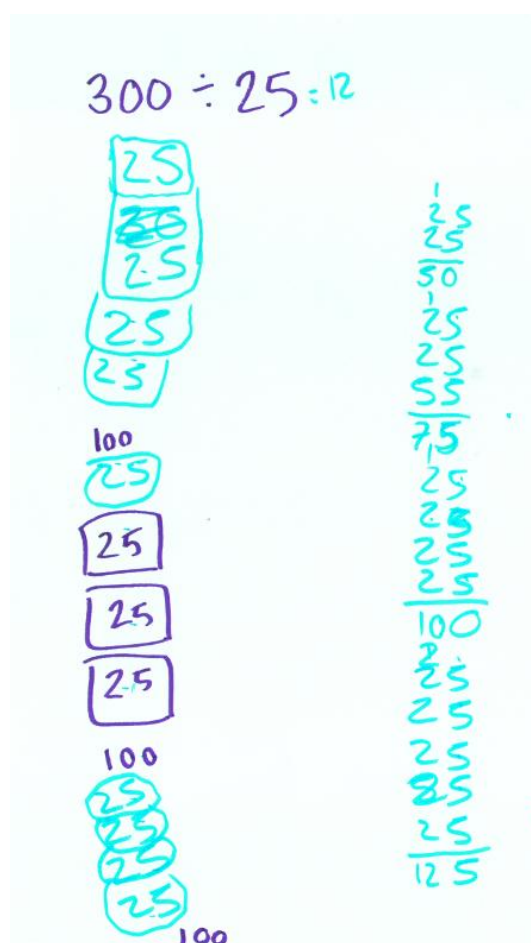 300 ÷ 25 = 12
25
25
25
25
100
25
25
25
25
100
25
25
25
25
100
1
25
25
50
1
25
25
55
75
1
25
25
25
25
100
2
25
25
25
25
25
125